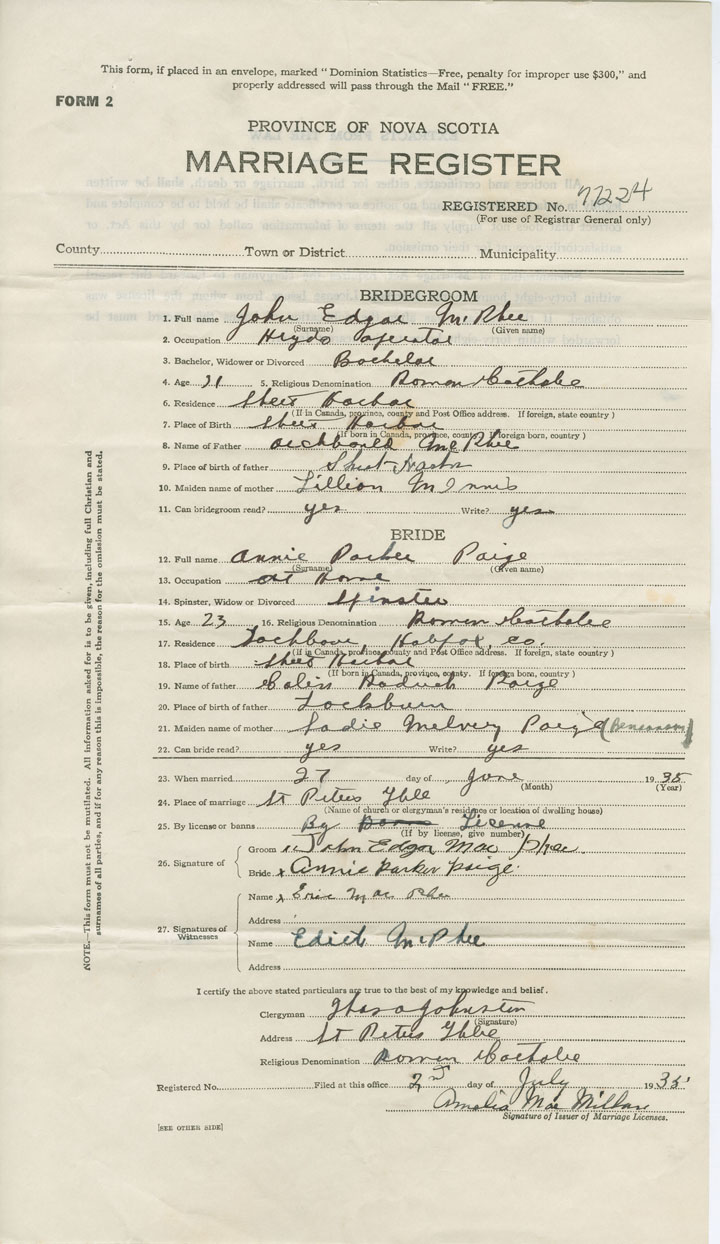 This form, if placed in an envelope, marked "Dominion Statistics—Free, penalty for improper use $300," and
properly addressed will pass through the Mail "FREE."
FORM 2
PROVINCE OF NOVA SCOTIA
MARRIAGE REGISTER
REGISTERED No. 77224
(For use of Registrar General only)
County Town or District Municipality
BRIDEGROOM
1. Full name John Edgar McPhee
(Surname) (Given name)
2. Occupation Hrydo operator
3. Bachelor, Widower or Divorced Bachelor
4. Age 21 5. Religious Denomination Roman Catholic
6. Residence Sheet Harbor
(If in Canada, province, county and Post Office address. If foreign, state country)
7. Place of Birth Sheet Harbor
(If born in Canada, province, county. If foreign born, country)
8. Name of Father McPhee
9. Place of birth of father Sheet Harbor
10. Maiden name of mother Lillian McInnis
11. Can bridegroom read? yes Write? yes
BRIDE
12. Full name Annie Parker Paige
(Surname) (Given name)
13. Occupation at Home
14. Spinster, Widow or Divorced Spinster
15. Age 23 16. Religious Denomination Roman Catholic
17. Residence Halifax, Co.
(If in Canada, province, county and Post Office address. If foreign, state country)
18. Place of birth Sheet Harbor
(If born in Canada, province, county. If foreign born, country)
19. Name of father Colin Paige
20. Place of birth of father
21. Maiden name of mother Sadie Paige
22. Can bride read? yes Write? yes
23. When married 27 day of June 1935
(Month) (Year)
24. Place of marriage St Peters Glebe
(Name of church or clergyman's residence or location of dwelling house)
25. By license or banns By Banns License
(If by license, give number)
26. Signature of
Groom x John Edgar Mac Phee
Bride x Annie Parker Paige.
27. Signatures of Witnesses
Name x Mac Phee
Address
Name Edith McPhee
Address
I certify the above stated particulars are true to the best of my knowledge and belief.
Clergyman Johnston
(Signature)
Address St Peters Glebe
Religious Denomination Roman Catholic
Registered No. Filed at this office 2nd day of July 1935
Amelia Mac Millan
Signature of Issuer of Marriage Licenses.
[SEE OTHER SIDE]
NOTE.—This form must not be mutilated. All information asked for is to be given, including full Christian and
surnames of all parties, and if for any reason this is impossible, the reason for the omission must be stated.